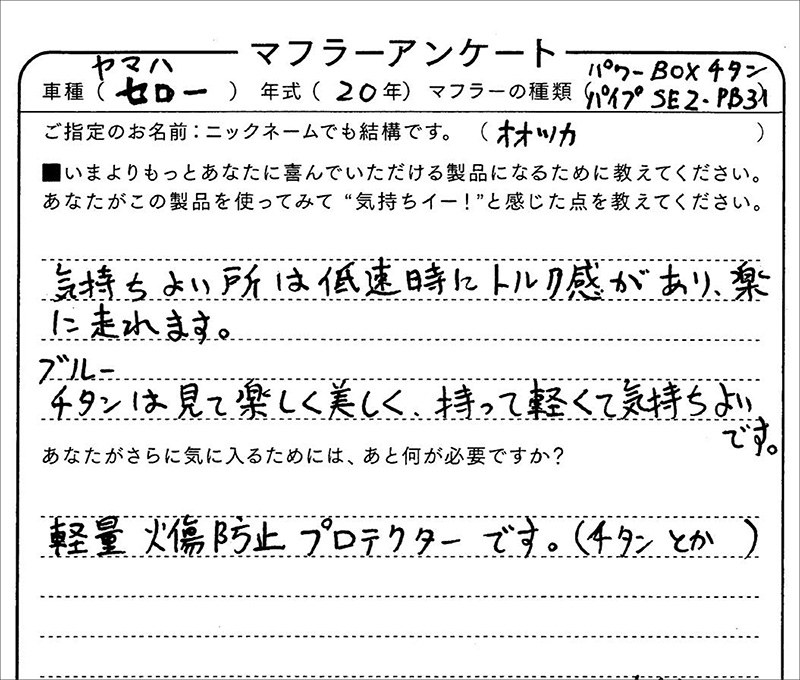 マフラーアンケート
ヤマハ
車種（ セロー ） 年式（ 20年） マフラーの種類（パワーBOXチタン
パイプ SE2・PB31
ご指定のお名前：ニックネームでも結構です。（ オオツカ ）
■いまよりもっとあなたに喜んでいただける製品になるために教えてください。
あなたがこの製品を使ってみて“気持ちイー！”と感じた点を教えてください。
気持ちよい所は低速時にトルク感があり、楽
に走れます。
ブルー
チタンは見て楽しく美しく、持って軽くて気持ちよい
です。
あなたがさらに気に入るためには、あと何が必要ですか？
軽量 火傷防止 プロテクター です。（チタン とか ）